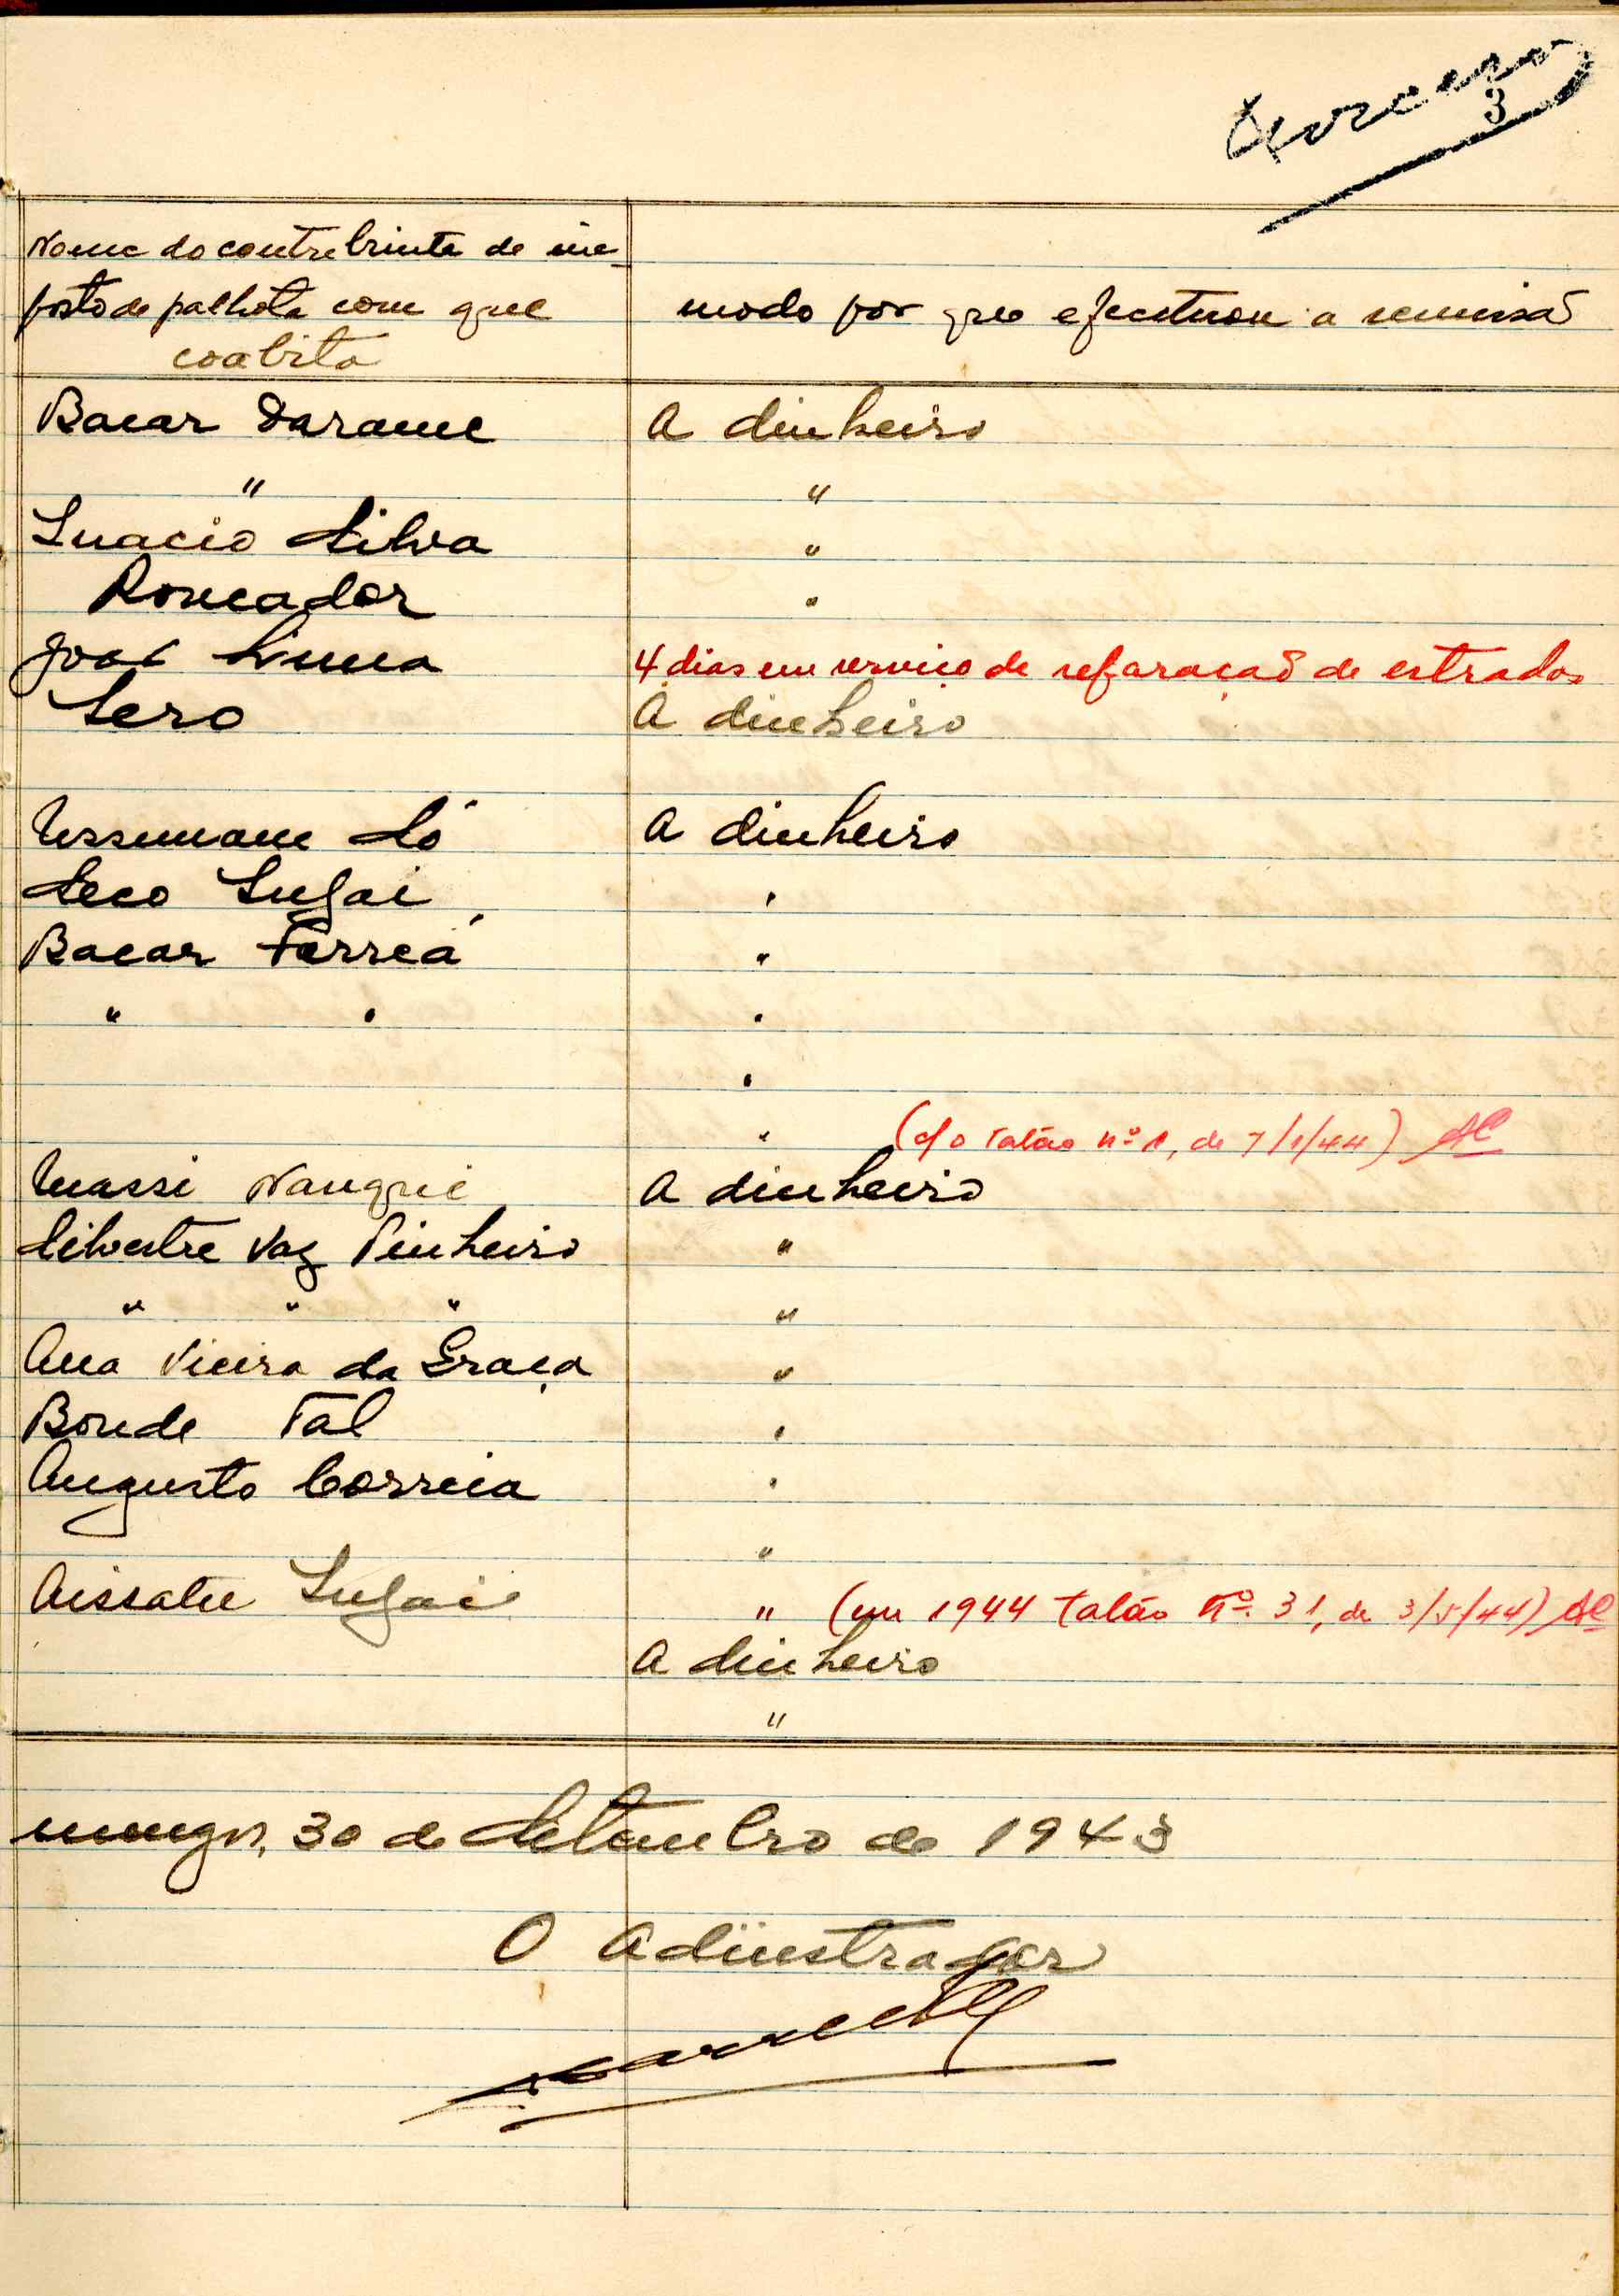 3
Nome do contrebuinte de im-
posto de palhota com que
coabita
modo por que efectuou a remissão
Bacar Darame A dinheiro
" "
Inacio Silva "
Roncador "
4 dias em serviço de reparação de estradas
Sero A dinheiro
Ussumane Só A dinheiro
Seco Injai "
Bacar Turrea "
" " "
"
" (c/o talão nº 1, de 7/1/44) AC
Uassi Nanque A dinheiro
Silvestre Vaz Pinheiro "
" " " "
Ana Vieira da Graça "
Bonde Tal "
Augusto Correia "
"
Aissatu Injai " (em 1944 talão nº. 31, de 3/5/44) AC
A dinheiro
"
30 de Setembro de 1943
O Adinstrador